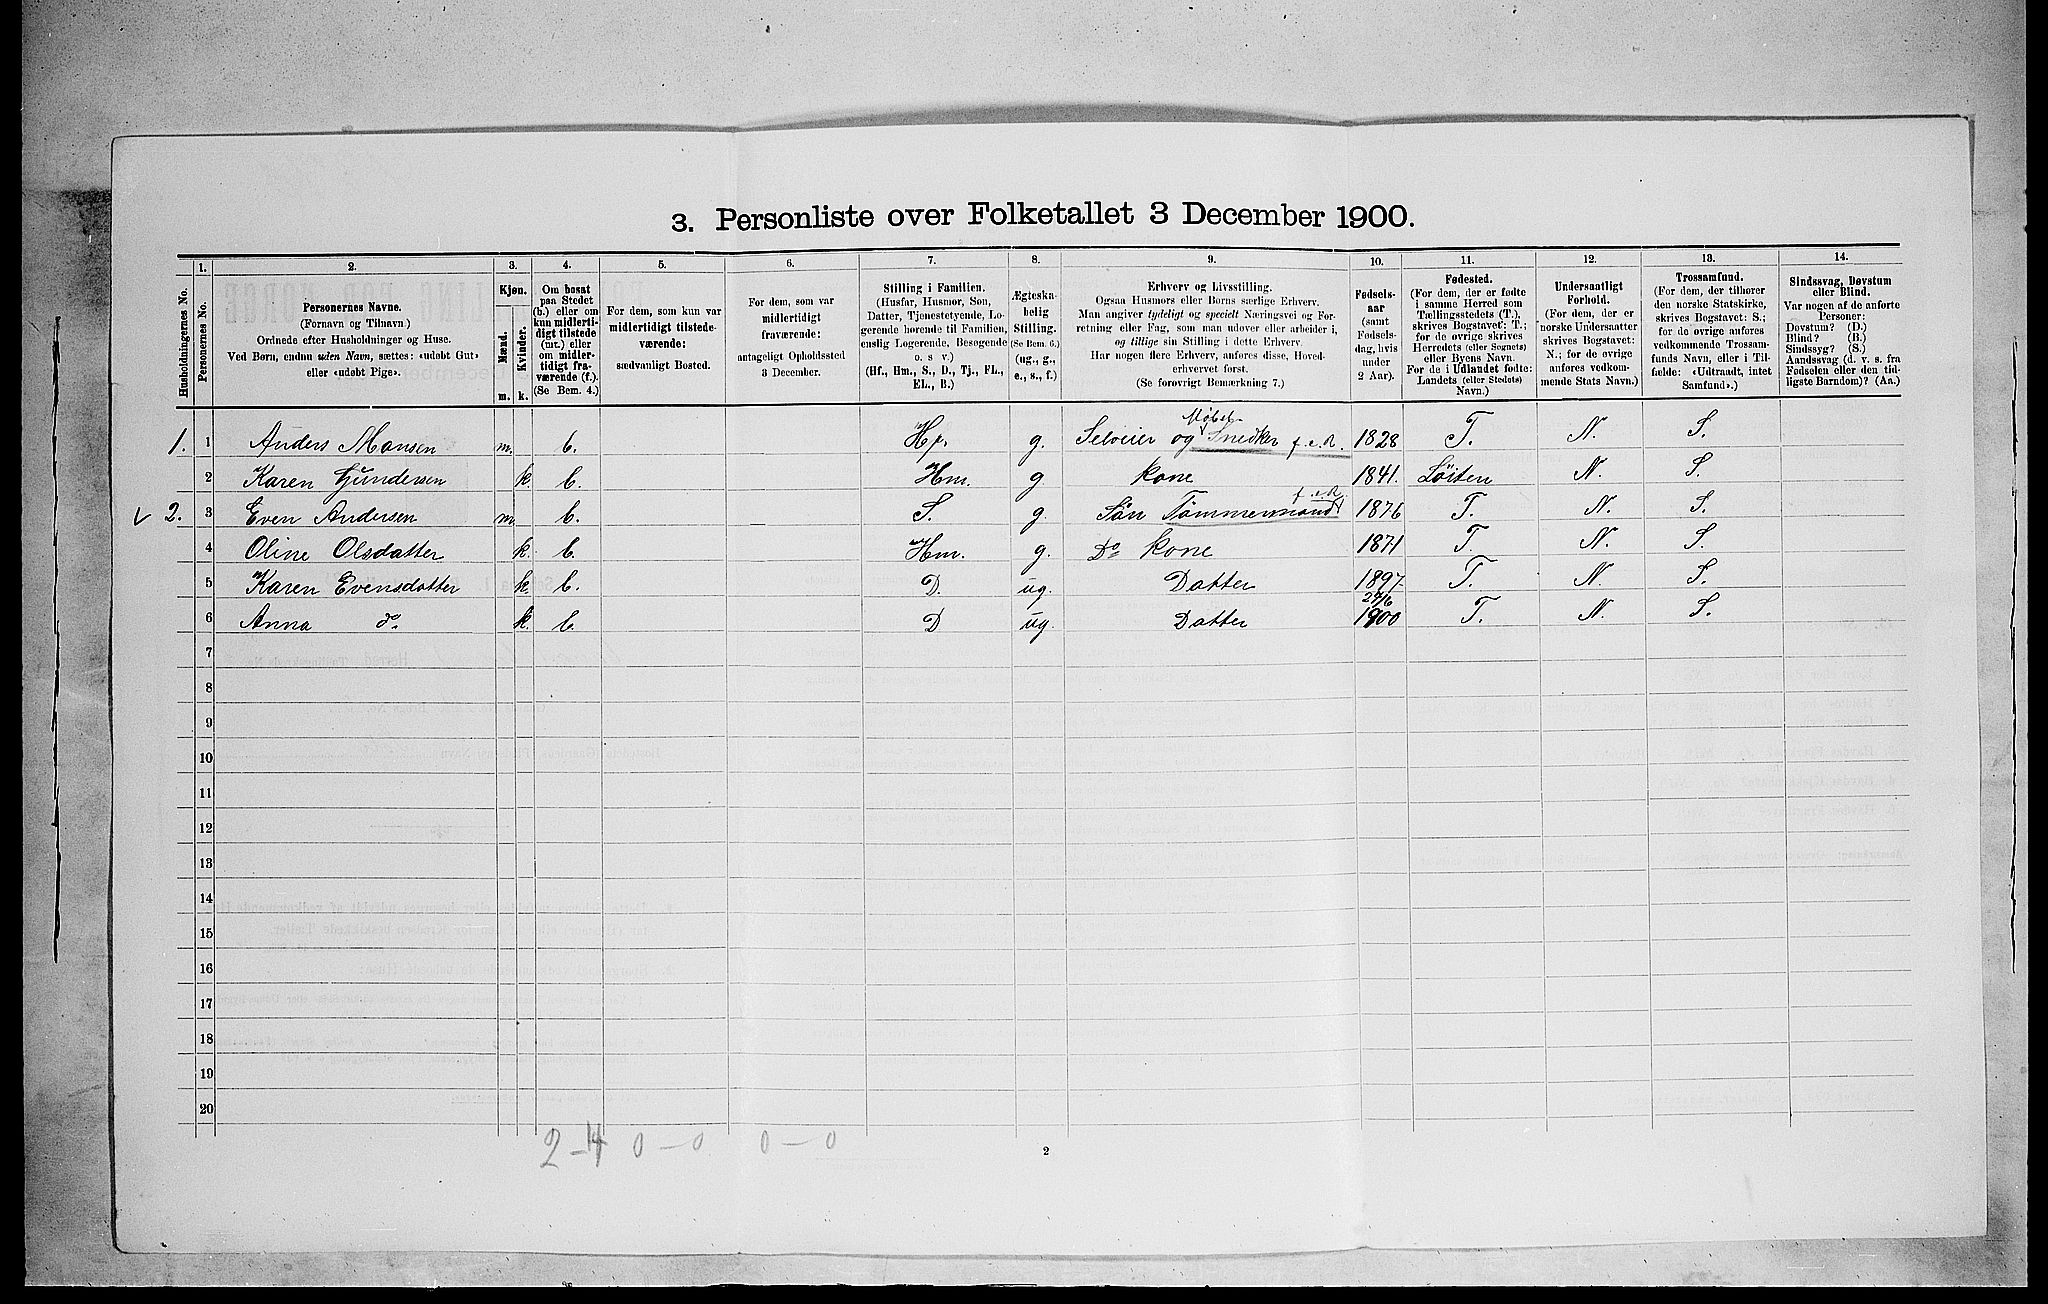 3. Personliste over Folketallet 3 December 1900.
Husholdningernes No.
1. Personernes No.
2. Personernes Navne.
(Fornavn og Tilnavn.)
Ordnede efter Husholdninger og Huse.
Ved Børn, endnu uden Navn, sættes: «udøbt Gut»
eller «udøbt Pige».
3. Kjøn.
Mænd. m.
Kvinder. k.
4. Om bosat
paa Stedet
(b.) eller om
kun midlerti-
digt tilstede
(mt.) eller
om midler-
tidigt fra-
værende (f.).
(Se Bem. 4.)
5. For dem, som kun var
midlertidigt tilstede-
værende:
sædvanligt Bosted.
6. For dem, som var
midlertidigt
fraværende:
antageligt Opholdssted
3 December.
7. Stilling i Familien.
(Husfar, Husmor, Søn,
Datter, Tjenestetyende, Lo-
gerende hørende til Familien,
enslig Logerende, Besøgende
o. s v.)
(Hf., Hm., S., D., Tj., FL.,
EL., B.)
8. Ægteska-
belig
Stilling.
(Se Bem. 6.)
(ug., g.,
e., s., f.)
9. Erhverv og Livsstilling.
Ogsaa Husmors eller Børns særlige Erhverv.
Man angiver tydeligt og specielt Næringsvei og For-
retning eller Fag, som man udøver eller arbeider i,
og tillige sin Stilling i dette Erhverv.
Har nogen flere Erhverv, anføres disse, Hoved-
erhvervet først.
(Se forøvrigt Bemærkning 7.)
10. Fødsels-
aar
(samt
Fødsels-
dag, hvis
under
2 Aar).
11. Fødested.
(For dem, der er fødte
i samme Herred som
Tællingsstedets (T.),
skrives Bogstavet: T.;
for de øvrige skrives
Herredets (eller Sognets)
eller Byens Navn.
For de i Udlandet fødte:
Landets (eller Stedets)
Navn.)
12. Undersaatligt
Forhold.
(For dem, der er
norske Undersaatter
skrives Bogstavet:
N.; for de øvrige
anføres vedkom-
mende Stats Navn.)
13. Trossamfund.
(For dem, der tilhører
den norske Statskirke,
skrives Bogstavet: S.;
for de øvrige anføres
vedkommende Trossam-
funds Navn, eller i Til-
fælde: «Udtraadt, intet
Samfund».)
14. Sindssvag, Døvstum
eller Blind.
Var nogen af de anførte
Personer:
Døvstum? (D.)
Blind? (B.)
Sindssyg? (S.)
Aandssvag (d. v. s. fra
Fødselen eller den tid-
ligste Barndom)? (Aa.)
1. 1 Anders Mansen m. b. Hf. g. Selveier og Møbel Snedker f.e.R. 1828 T. N. S.
2 Karen Gundersen k. b. Hm. g kone 1841. Løiten N. S.
2. 3 Even Andersen m. b. S. g. Sön Tømmermand f.e.R. 1876 T. N. S.
4 Oline Olsdatter k. b. Hm. g. Do kone 1871 T. N. S.
5 Karen Evensdatter k. b. D. ug. Datter 1897 T. N. S.
6 Anna do k. b. D ug. Datter 1900 T. N. S.
7
8
9
10
11
12
13
14
15
16
17
18
19
20
2-4 0-0 0-0
2